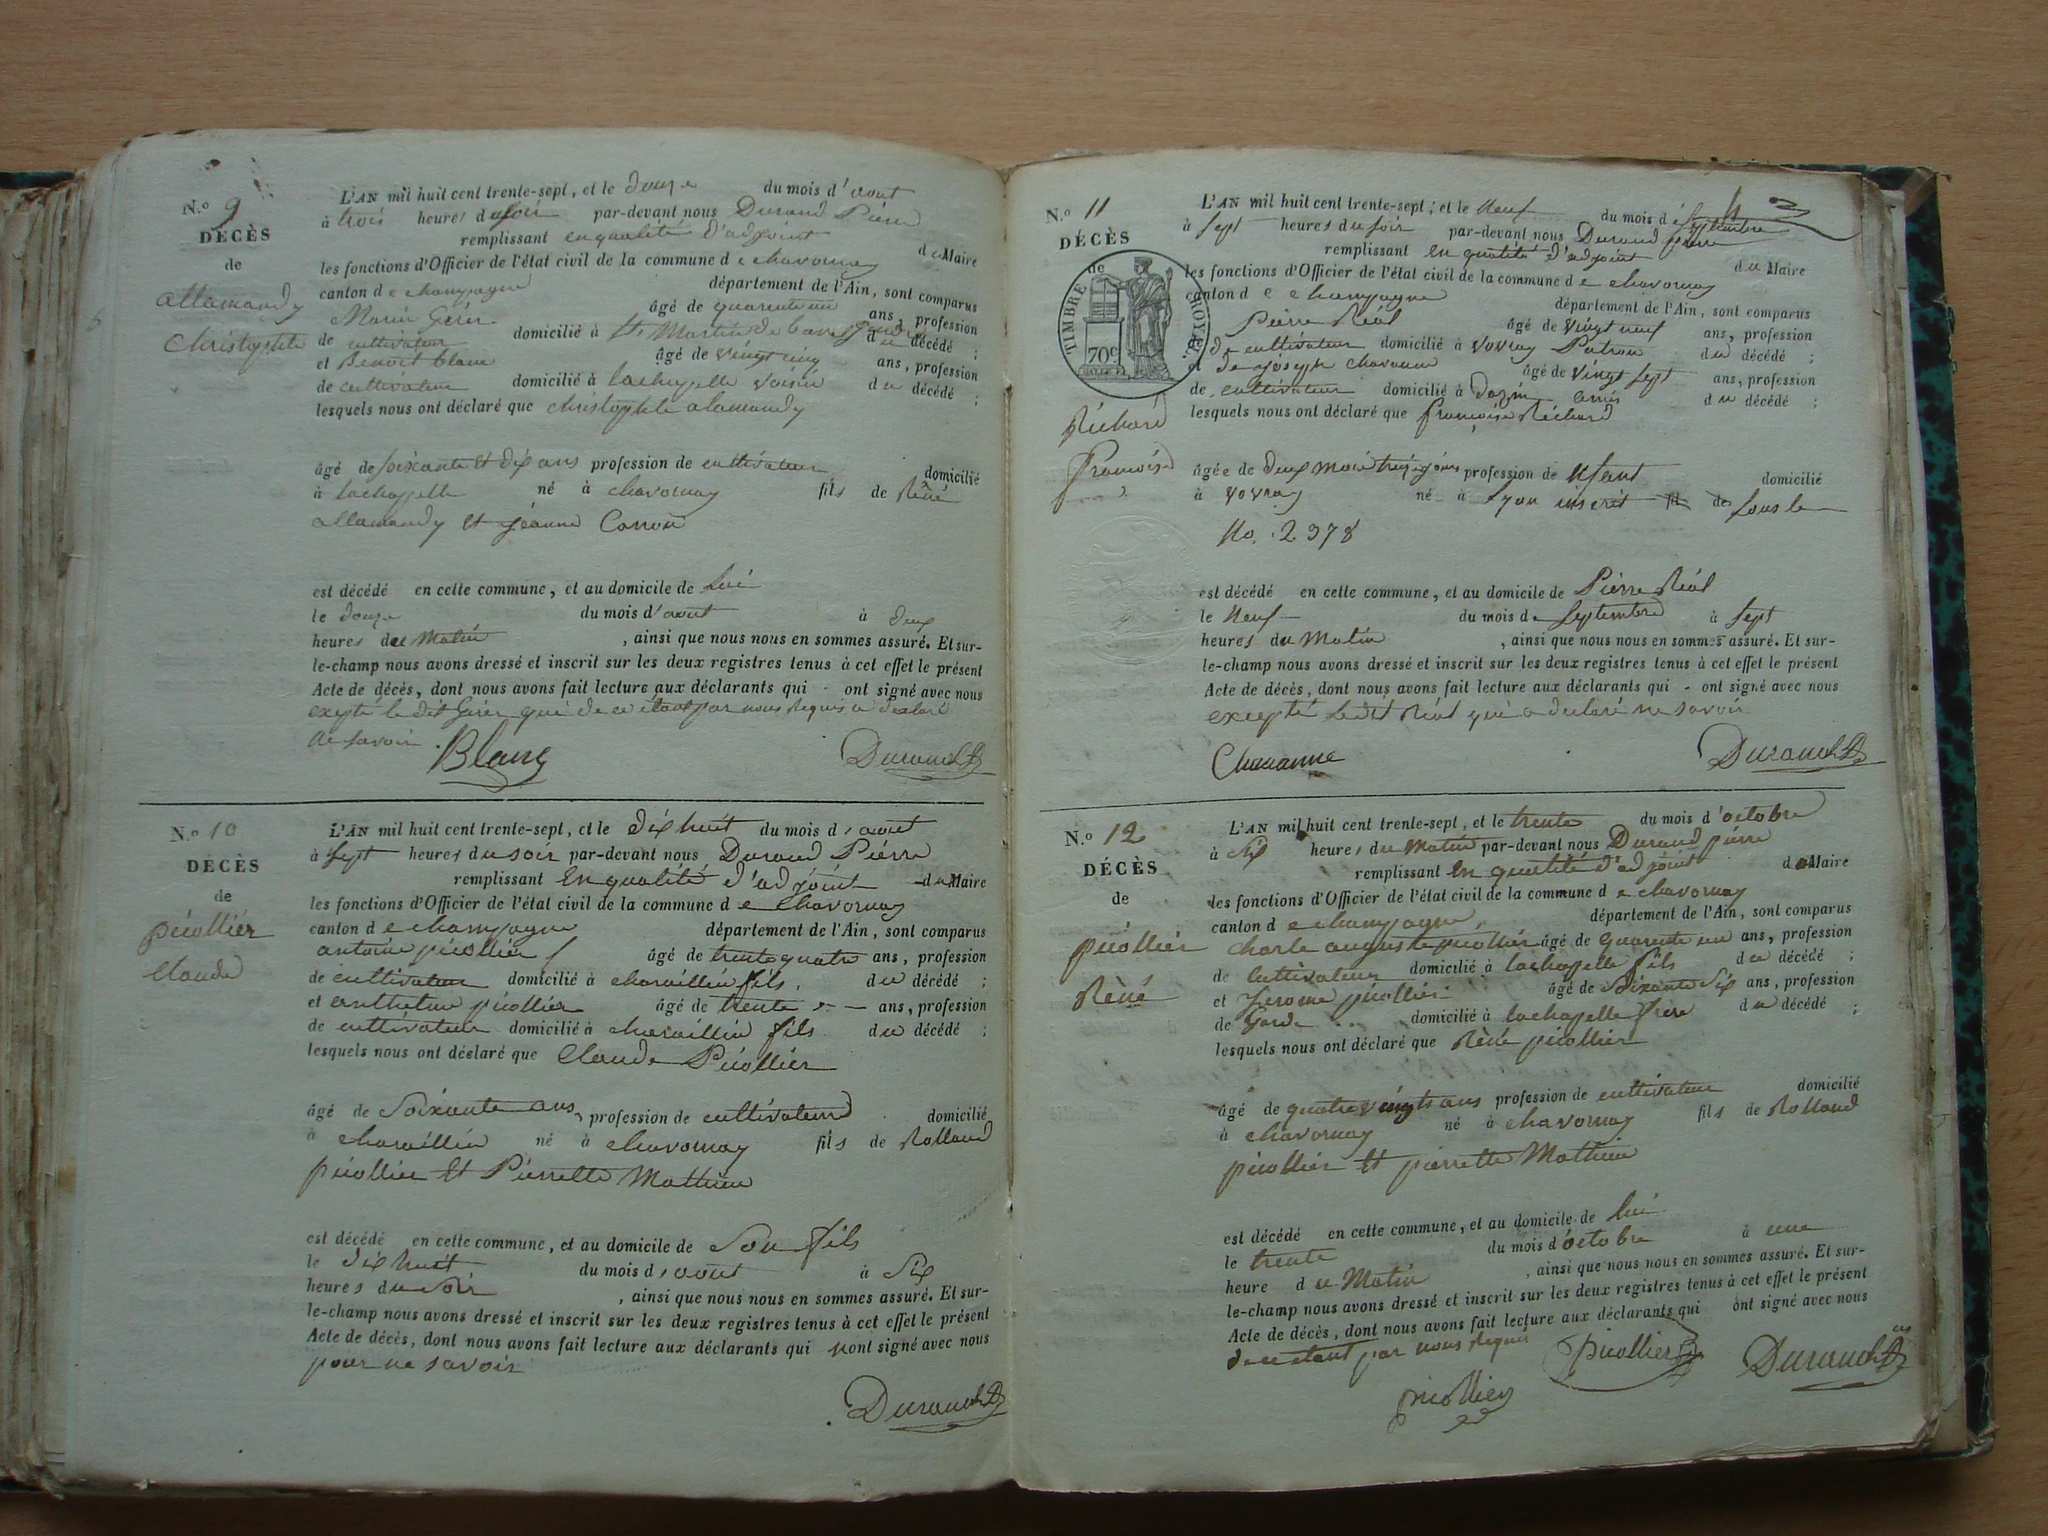 N.o 9
DÉCÈS
de
allamandy
christophle
L'AN mil huit cent trente-sept, et le douze du mois d'aout
à trois heures du soir par-devant nous Durand Pierre
remplissant en qualité d'adjoint du Maire
les fonctions d'Officier de l'état civil de la commune de chavornay
canton de champagne département de l'Ain, sont comparus
Marin Gérer âgé de quarente un ans, profession
de cultivateur domicilié à St Martin de bavel du décédé ;
et Benoit blanc âgé de vingt cinq ans, profession
de cultivateur domicilié à lachapelle voisin du décédé ;
lesquels nous ont déclaré que christophle alamandy
âgé de soixante et dix ans profession de cultivateur domicilié
à lachappelle né à chavornay fils de Rêné
allamandy et jéanne Carron
est décédé en cette commune, et au domicile de lui
le douze du mois d'aout à deux
heures du Matin , ainsi que nous nous en sommes assuré. Et sur-
le-champ nous avons dressé et inscrit sur les deux registres tenus à cet effet le présent
Acte de décès, dont nous avons fait lecture aux déclarants qui - ont signé avec nous
exepté le dit Gérer qui de ce étant par nous Requis a declaré
ne savoir Blanc Durand
N.o 10
DÉCÈS
de
picollier
claude
L'AN mil huit cent trente-sept, et le dix huit du mois d'aout
à sept heures du soir par-devant nous Durand Piérre
remplissant en qualité d'adjoint du Maire
les fonctions d'Officier de l'état civil de la commune de chavornay
canton de champagne département de l'Ain, sont comparus
antoine picollier âgé de trente quatre ans, profession
de cultivateur domicilié à charaillin fils du décédé ;
et anthelme picollier âgé de trente ans, profession
de cultivateur domicilié à charaillin fils du décédé ;
lesquels nous ont déclaré que Claude Picollier
âgé de soixante ans profession de cultivateur domicilié
à charaillin né à chavornay fils de Rolland
picollier et Pierrette Mathieu
est décédé en cette commune, et au domicile de son fils
le dix huit du mois d'aout à six
heures du soir , ainsi que nous nous en sommes assuré. Et sur-
le-champ nous avons dressé et inscrit sur les deux registres tenus à cet effet le présent
Acte de décès, dont nous avons fait lecture aux déclarants qui nont signé avec nous
pour ne savoir
Durand
N.o 11
DÉCÈS
de
TIMBRE ROYAL
70c
Richard
françoise
L'AN mil huit cent trente-sept, et le neuf du mois de septembre
à sept heures du soir par-devant nous Durand pierre
remplissant en qualité d'adjoint du Maire
les fonctions d'Officier de l'état civil de la commune de chavornay
canton de champagne département de l'Ain, sont comparus
Pierre Réal âgé de vingt neuf ans, profession
de cultivateur domicilié à vovray Patron du décédé ;
et de joseph chavanne âgé de vingt sept ans, profession
de cultivateur domicilié à dazin amis du décédé ;
lesquels nous ont déclaré que françoise Richard
âgée de deux mois treize jours profession de Nfant domicilié
à vovray né à Lyon inscrit de sous le
No. 2378
est décédé en cette commune, et au domicile de Pierre Réal
le neuf du mois de septembre à sept
heures du Matin , ainsi que nous nous en sommes assuré. Et sur-
le-champ nous avons dressé et inscrit sur les deux registres tenus à cet effet le présent
Acte de décès, dont nous avons fait lecture aux déclarants qui - ont signé avec nous
excepté ledit Réal qui a declaré ne savoir
Chavanne Durand
N.o 12
DÉCÈS
de
picollier
Rèné
L'AN mil huit cent trente-sept, et le trente du mois d'octobre
à six heures du Matin par-devant nous Durand pierre
remplissant en qualité d'adjoint du Maire
les fonctions d'Officier de l'état civil de la commune de chavornay
canton de champagne département de l'Ain, sont comparus
charle auguste picollier âgé de quarente un ans, profession
de cultivateur domicilié à lachappelle fils du décédé ;
et jerome picollier âgé de soixante six ans, profession
de Garde domicilié à lachapelle frere du décédé ;
lesquels nous ont déclaré que Rèné picollier
âgé de quatre vingts ans profession de cultivateur domicilié
à chavornay né à chavornay fils de Rolland
picollier et pierrette Mathieu
est décédé en cette commune, et au domicile de lui
le trente du mois d'octobre à une
heure du Matin , ainsi que nous nous en sommes assuré. Et sur-
le-champ nous avons dressé et inscrit sur les deux registres tenus à cet effet le présent
Acte de décès, dont nous avons fait lecture aux déclarants qui ont signé avec nous
de ce etant par nous Requis picollier Durand
picollier